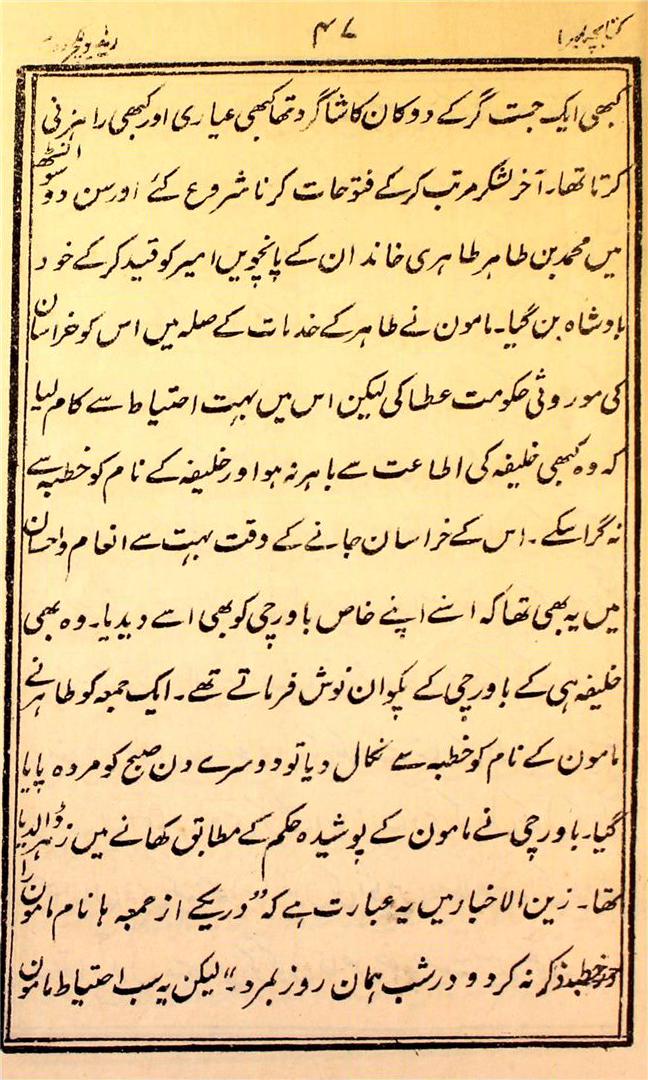 کتابچہ نمبر ۱
۴۷
کبھی ایک جست گر کے دوکان کا شاگرد تھا کبھی عیاری اور کبھی راہزنی
کرتا تھا۔ آخر لشکر مرتب کر کے فتوحات کرنا شروع کئے اور سن دو سو انسٹھ
میں محمد بن طاہر طاہری خاندان کے پانچویں امیر کو قید کر کے خود
بادشاہ بن گیا۔ مامون نے طاہر کے خدمات کے صلہ میں اس کو خراسان
کی موروثی حکومت عطا کی لیکن اس میں بہت احتیاط سے کام لیا
کہ وہ کبھی خلیفہ کی اطاعت سے باہر نہ ہوا اور خلیفہ کے نام کو خطبہ سے
نہ گرا سکے۔ اس کے خراسان جانے کے وقت بہت سے انعام و احسان
میں یہ بھی تھا کہ اسنے اپنے خاص باورچی کو بھی اسے دیدیا۔ وہ بھی
خلیفہ ہی کے باورچی کے پکوان نوش فرماتے تھے۔ ایک جمعہ کو طاہر نے
مامون کے نام کو خطبہ سے نکال دیا تو دوسرے دن صبح کو مردہ پایا
گیا۔ باورچی نے مامون کے پوشیدہ حکم کے مطابق کھانے میں زہر ڈالدیا
تھا۔ زین الاخبار میں یہ عبارت ہے کہ ”دریکے از جمعہ ہا نام مامون را
خطبہ ذکر نہ کرد و در شب ہمان روز بمرد“ لیکن یہ سب احتیاط مامون